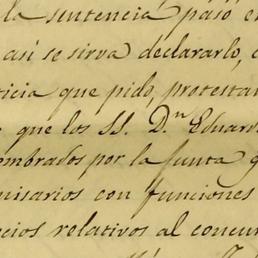 la sentencia pasó e
así se sirva declararlo, c
ticia que pido, protestan
que los SS. D.n Eduard
ombrados por la Junta q
misarios con funciones
cios relativos al concur